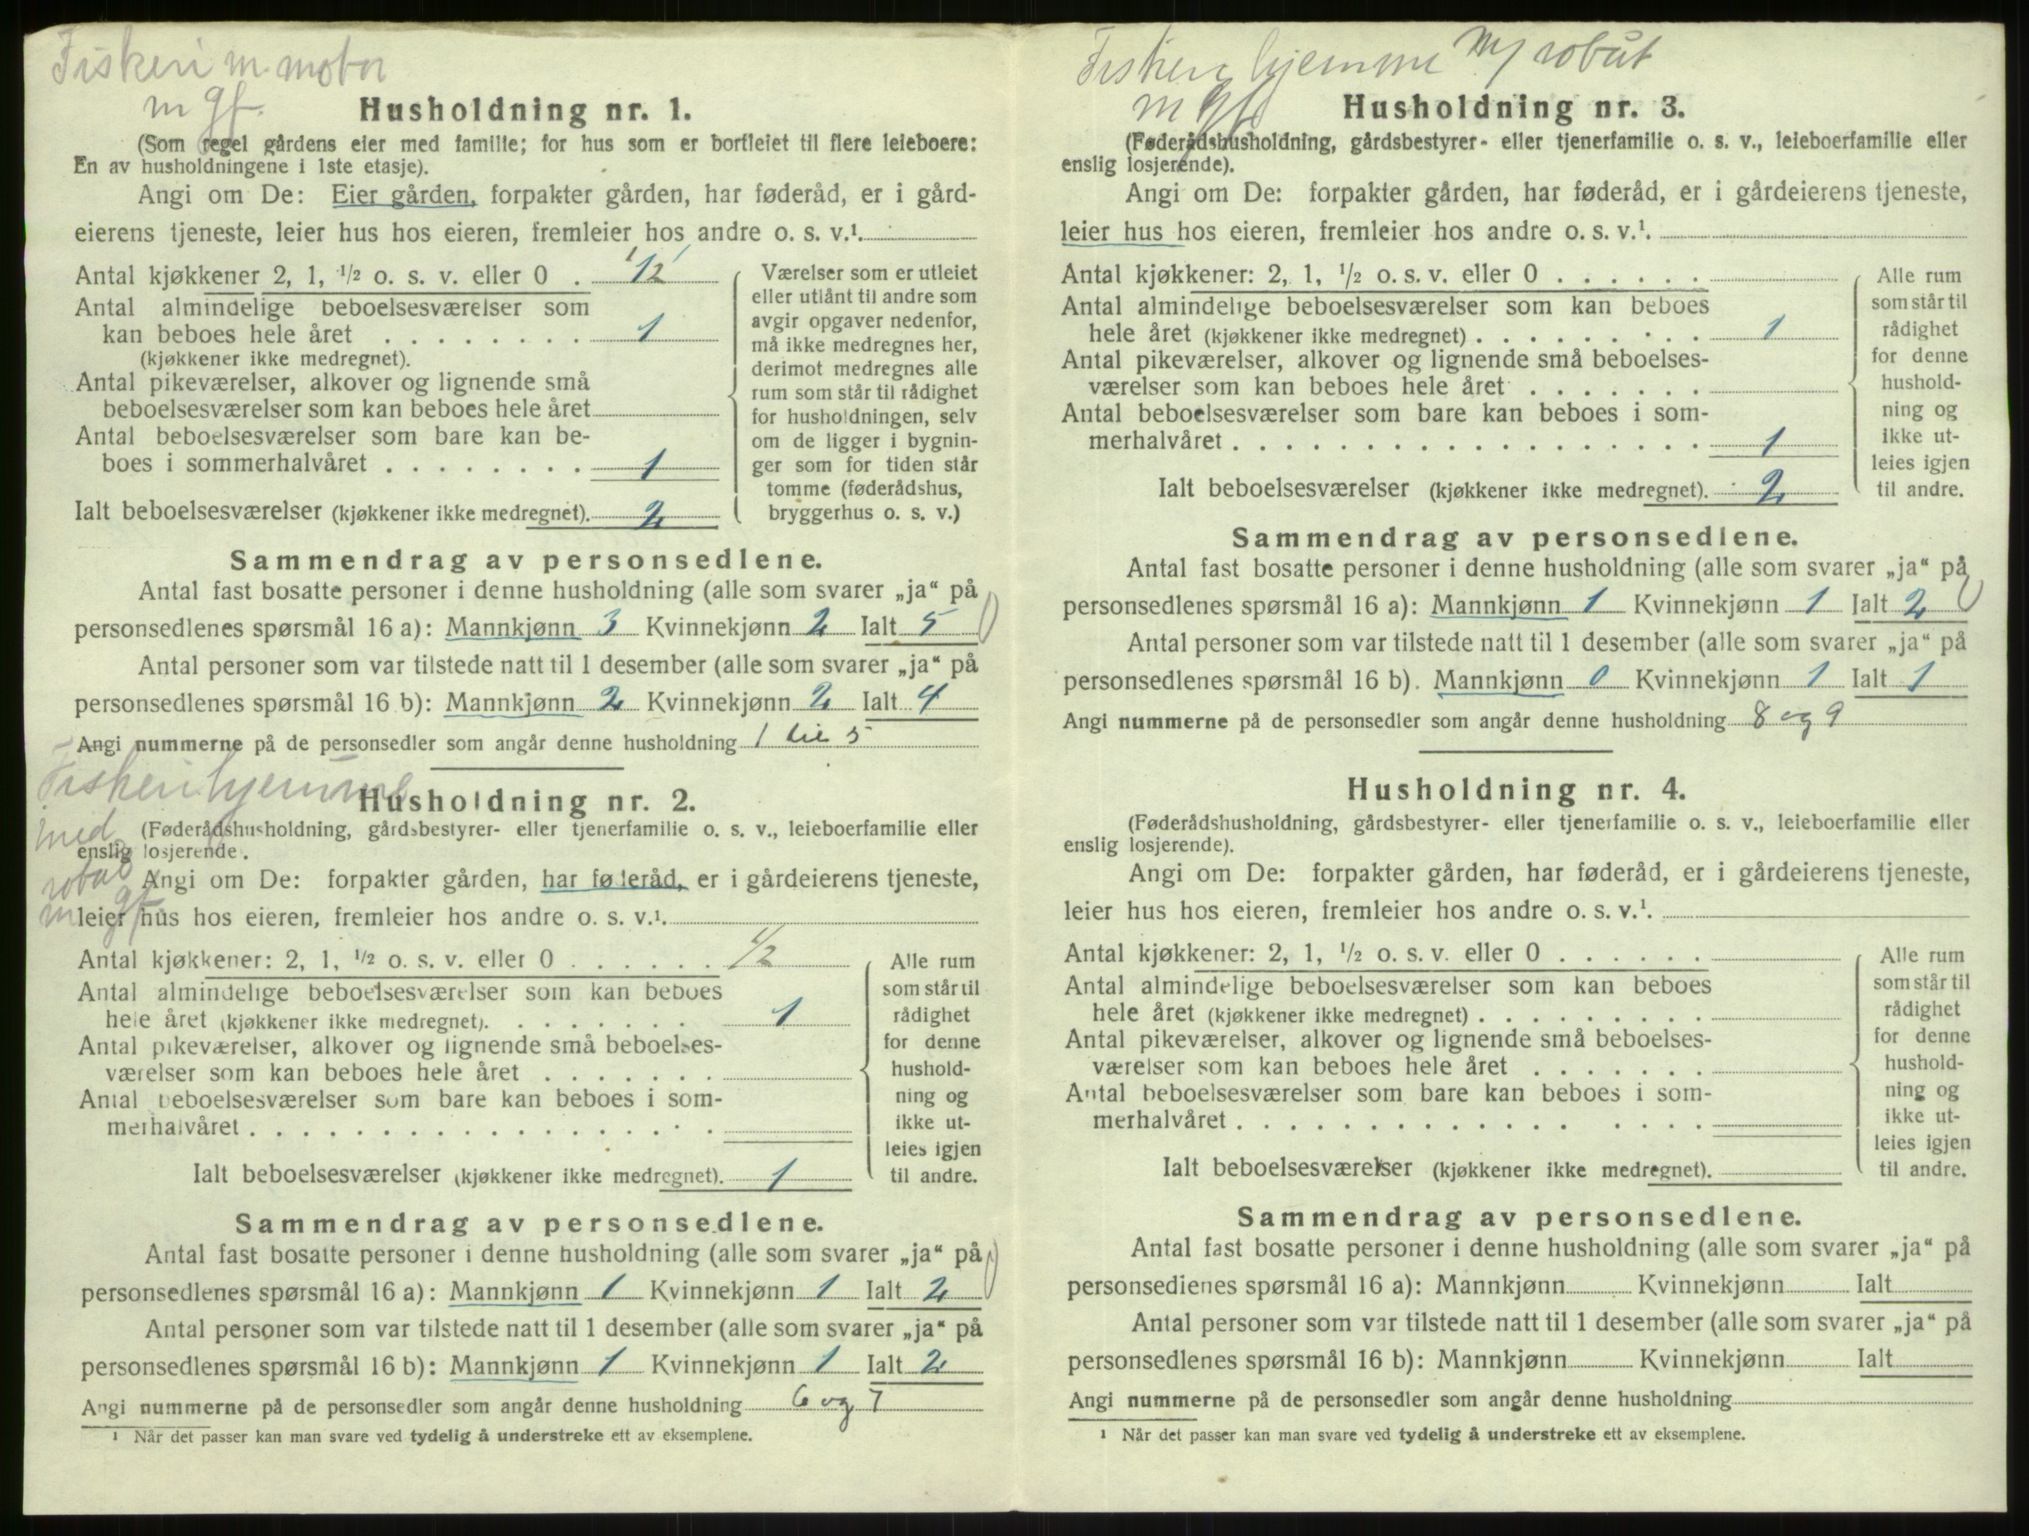 Fiskeri m motor
m gf.
Husholdning nr. 1.
(Som regel gårdens eier med familie; for hus som er bortleiet til flere leieboere:
En av husholdningene i 1ste etasje).
Angi om De: Eier gården, forpakter gården, har føderåd, er i gård-
eierens tjeneste, leier hus hos eieren, fremleier hos andre o. s. v.¹.
Antal kjøkkener 2, 1, ½ o. s. v. eller 0 . ½
Antal almindelige beboelsesværelser som
kan beboes hele året . . . . . . . . 1
(kjøkkener ikke medregnet).
Antal pikeværelser, alkover og lignende små
beboelsesværelser som kan beboes hele året
Antal beboelsesværelser som bare kan be-
boes i sommerhalvåret . . . . . . . . 1
Ialt beboelsesværelser (kjøkkener ikke medregnet). 2
Værelser som er utleiet
eller utlånt til andre som
avgir opgaver nedenfor,
må ikke medregnes her,
derimot medregnes alle
rum som står til rådighet
for husholdningen, selv
om de ligger i bygnin-
ger som for tiden står
tomme (føderådshus,
bryggerhus o. s. v.)
Sammendrag av personsedlene.
Antal fast bosatte personer i denne husholdning (alle som svarer „ja“ på
personsedlenes spørsmål 16 a): Mannkjønn 3 Kvinnekjønn 2 Ialt 5
Antal personer som var tilstede natt til 1 desember (alle som svarer „ja“ på
personsedlenes spørsmål 16 b): Mannkjønn 2 Kvinnekjønn 2 Ialt 4
Angi nummerne på de personsedler som angår denne husholdning 1 til 5
Fiskeri hjemme
med
robåt
m gf
Husholdning nr. 2.
(Føderådshusholdning, gårdsbestyrer- eller tjenerfamilie o. s. v., leieboerfamilie eller
enslig losjerende.
Angi om De: forpakter gården, har føderåd, er i gårdeierens tjeneste,
leier hus hos eieren, fremleier hos andre o. s. v.¹.
Antal kjøkkener: 2, 1, ½ o. s. v. eller 0 . . . . . . ½
Antal almindelige beboelsesværelser som kan beboes
hele året (kjøkkener ikke medregnet). . . . . . . . 1
Antal pikeværelser, alkover og lignende små beboelses-
værelser som kan beboes hele året . . . . . . .
Antal beboelsesværelser som bare kan beboes i som-
merhalvåret . . . . . . . . . . . . . . . . . .
Ialt beboelsesværelser (kjøkkener ikke medregnet). 1
Alle rum
som står til
rådighet
for denne
hushold-
ning og
ikke ut-
leies igjen
til andre.
Sammendrag av personsedlene.
Antal fast bosatte personer i denne husholdning (alle som svarer „ja“ på
personsedlenes spørsmål 16 a): Mannkjønn 1 Kvinnekjønn 1 Ialt 2
Antal personer som var tilstede natt til 1 desember (alle som svarer „ja“ på
personsedlenes spørsmål 16 b): Mannkjønn 1 Kvinnekjønn 1 Ialt 2
Angi nummerne på de personsedler som angår denne husholdning 6 og 7
¹ Når det passer kan man svare ved tydelig å understreke ett av eksemplene.
Fiskeri hjemme m/ robåt
m gf
Husholdning nr. 3.
(Føderådshusholdning, gårdsbestyrer- eller tjenerfamilie o. s. v., leieboerfamilie eller
enslig losjerende).
Angi om De: forpakter gården, har føderåd, er i gårdeierens tjeneste,
leier hus hos eieren, fremleier hos andre o. s. v.¹.
Antal kjøkkener: 2, 1, ½ o. s. v. eller 0 . . . . . .
Antal almindelige beboelsesværelser som kan beboes
hele året (kjøkkener ikke medregnet) . . . . . . . . . 1
Antal pikeværelser, alkover og lignende små beboelses-
værelser som kan beboes hele året . . . . . . .
Antal beboelsesværelser som bare kan beboes i som-
merhalvåret . . . . . . . . . . . . . . . . . . 1
Ialt beboelsesværelser (kjøkkener ikke medregnet). 2
Alle rum
som står til
rådighet
for denne
hushold-
ning og
ikke ut-
leies igjen
til andre.
Sammendrag av personsedlene.
Antal fast bosatte personer i denne husholdning (alle som svarer „ja“ på
personsedlenes spørsmål 16 a): Mannkjønn 1 Kvinnekjønn 1 Ialt 2
Antal personer som var tilstede natt til 1 desember (alle som svarer „ja“ på
personsedlenes spørsmål 16 b). Mannkjønn 0 Kvinnekjønn 1 Ialt 1
Angi nummerne på de personsedler som angår denne husholdning 8 og 9
Husholdning nr. 4.
(Føderådshusholdning, gårdsbestyrer- eller tjenerfamilie o. s. v., leieboerfamilie eller
enslig losjerende).
Angi om De: forpakter gården, har føderåd, er i gårdeierens tjeneste,
leier hus hos eieren, fremleier hos andre o. s. v.¹.
Antal kjøkkener: 2, 1, ½ o. s. v. eller 0 . . . . . .
Antal almindelige beboelsesværelser som kan beboes
hele året (kjøkkener ikke medregnet) . . . . . . . . .
Antal pikeværelser, alkover og lignende små beboelses-
værelser som kan beboes hele året . . . . . . .
Antal beboelsesværelser som bare kan beboes i som-
merhalvåret . . . . . . . . . . . . . . . . . .
Ialt beboelsesværelser (kjøkkener ikke medregnet).
Alle rum
som står til
rådighet
for denne
hushold-
ning og
ikke ut-
leies igjen
til andre.
Sammendrag av personsedlene.
Antal fast bosatte personer i denne husholdning (alle som svarer „ja“ på
personsedlenes spørsmål 16 a): Mannkjønn Kvinnekjønn Ialt
Antal personer som var tilstede natt til 1 desember (alle som svarer „ja“ på
personsedlenes spørsmål 16 b): Mannkjønn Kvinnekjønn Ialt
Angi nummerne på de personsedler som angår denne husholdning
¹ Når det passer kan man svare ved tydelig å understreke ett av eksemplene.